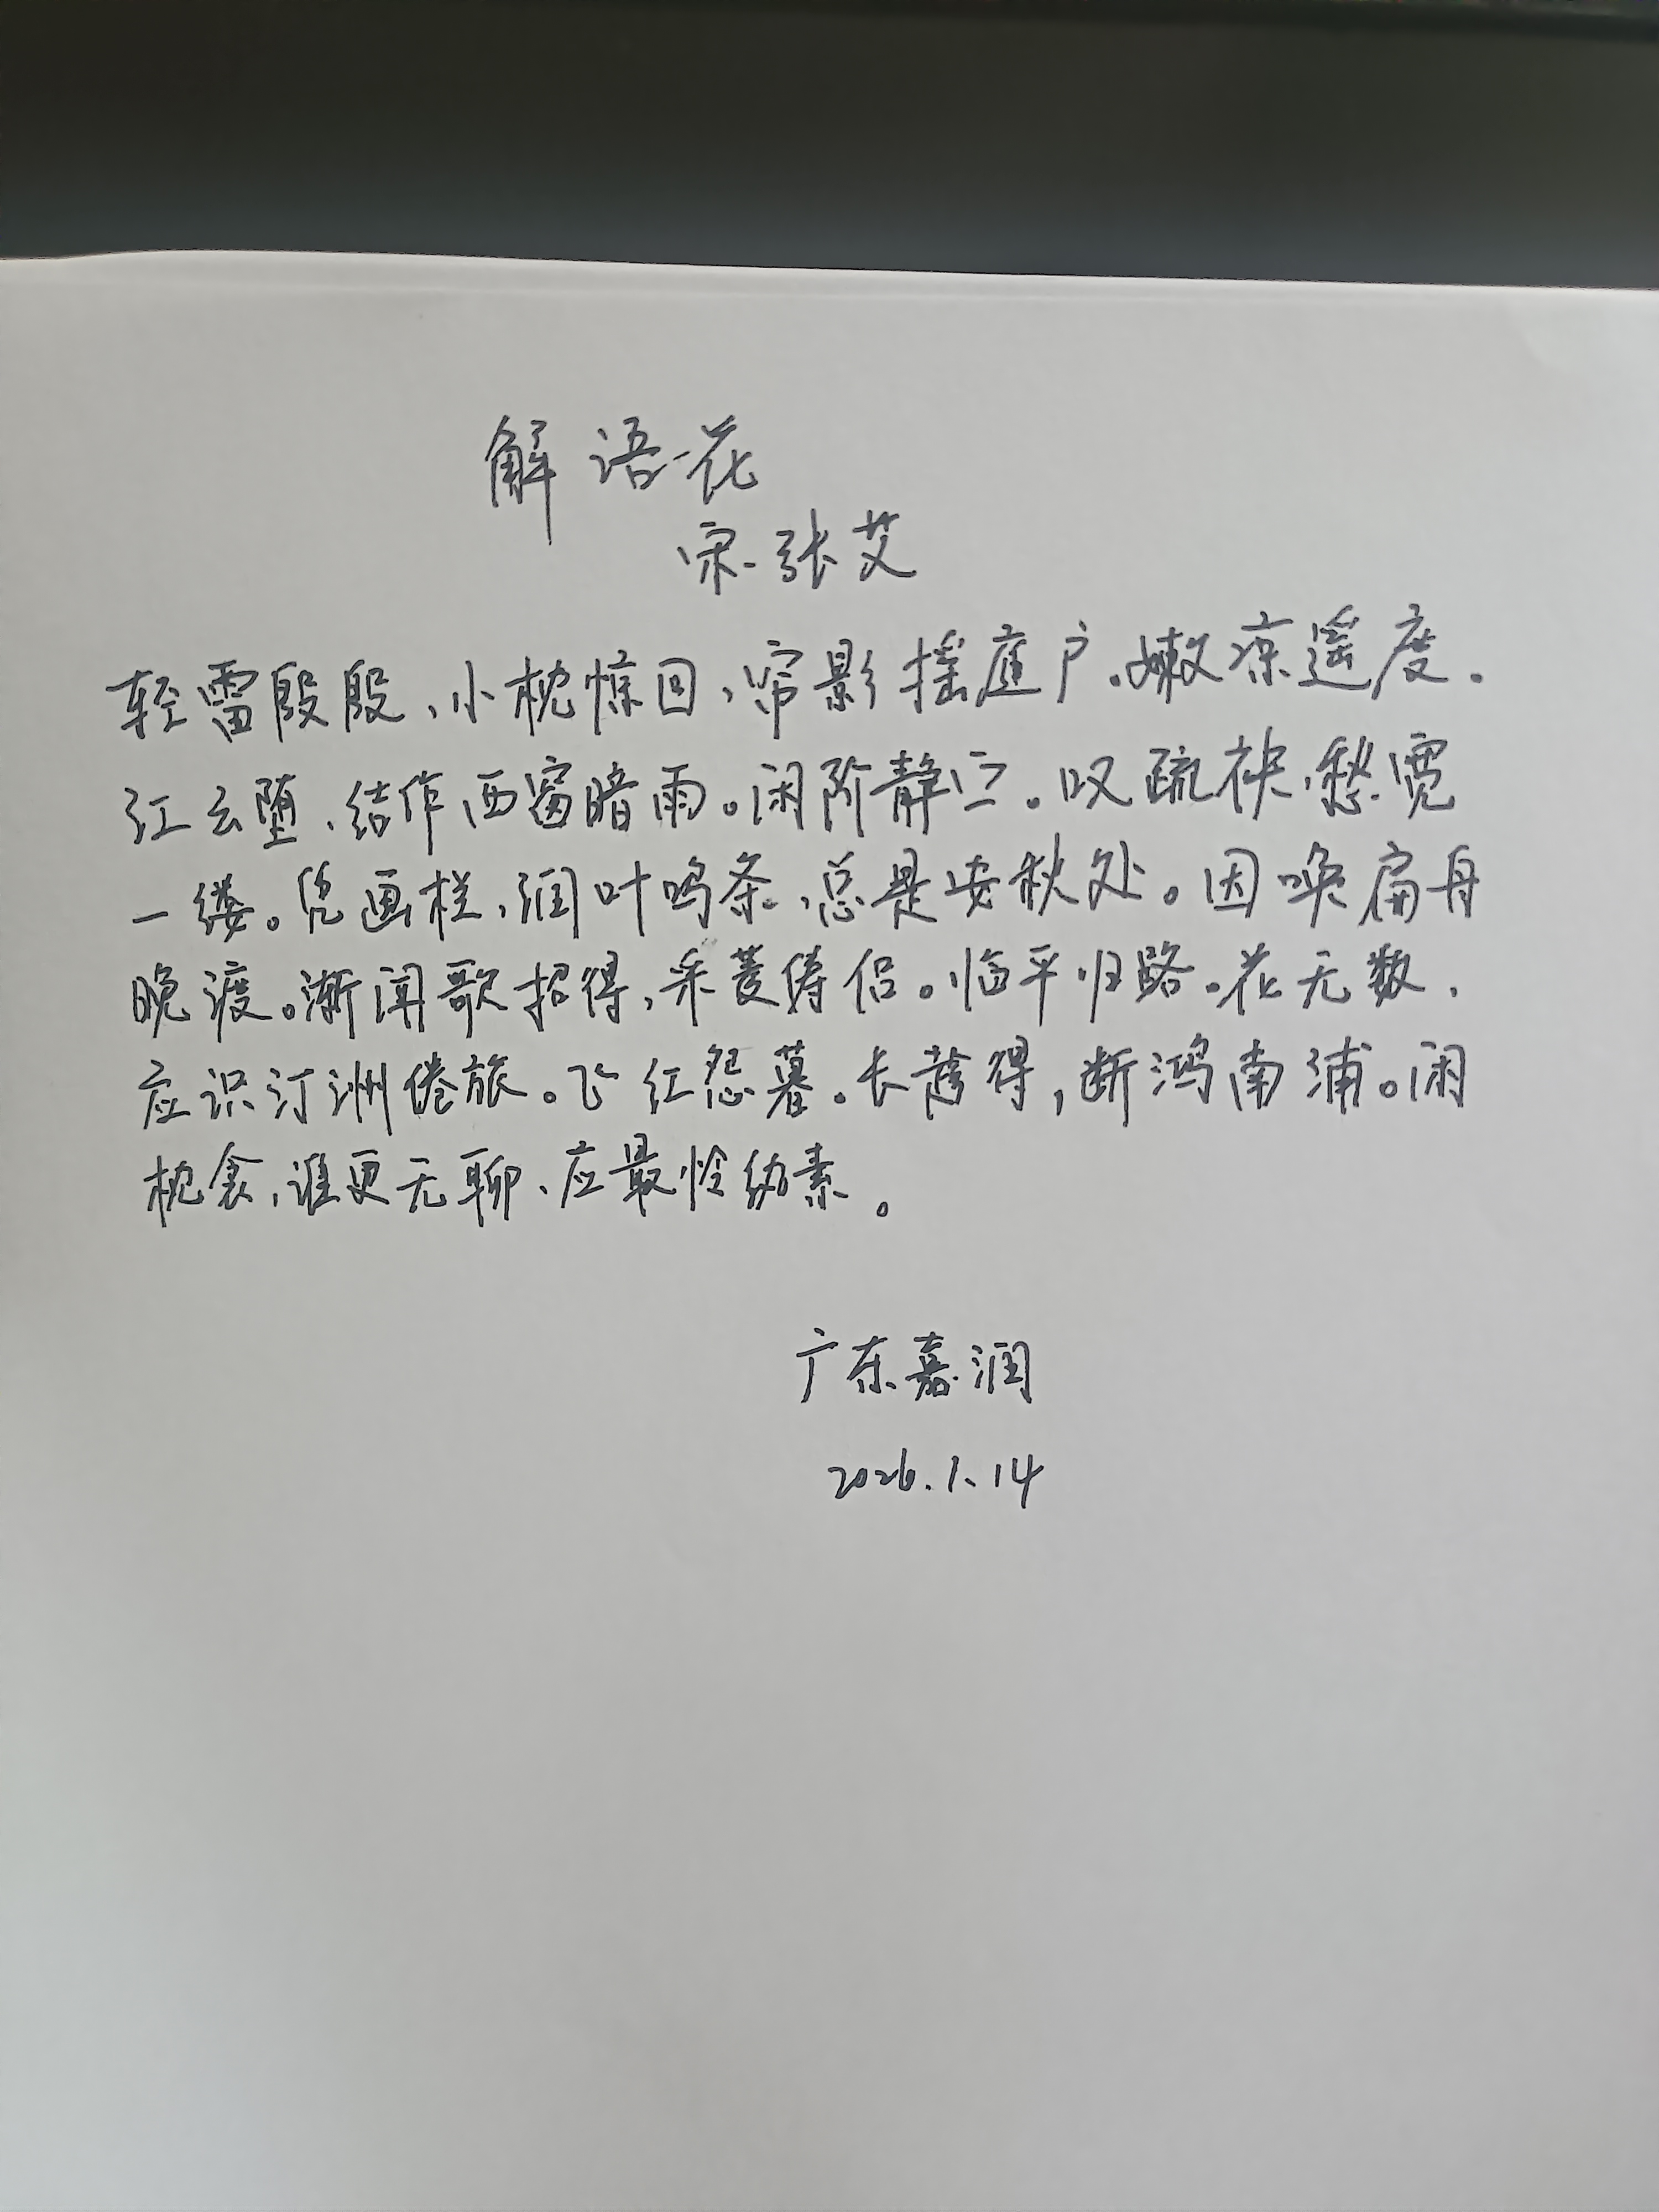 解语花
宋·张艾
轻雷殷殷、小枕惊回，帘影摇庭户。嫩凉遥度。
江云堕、结作西窗暗雨。闲阶静伫。叹疏袂、愁宽
一缕。凭画栏，润叶鸣条、总是安秋处。因唤扁舟
晚渡。渐闻歌招得，采菱俦侣。临平归路。花无数，
应识汀洲倦旅。飞红怨暮。长趁得，断鸿南浦。闲
枕衾，谁更无聊、应最怜纨素。
广东嘉润
2026.1.14